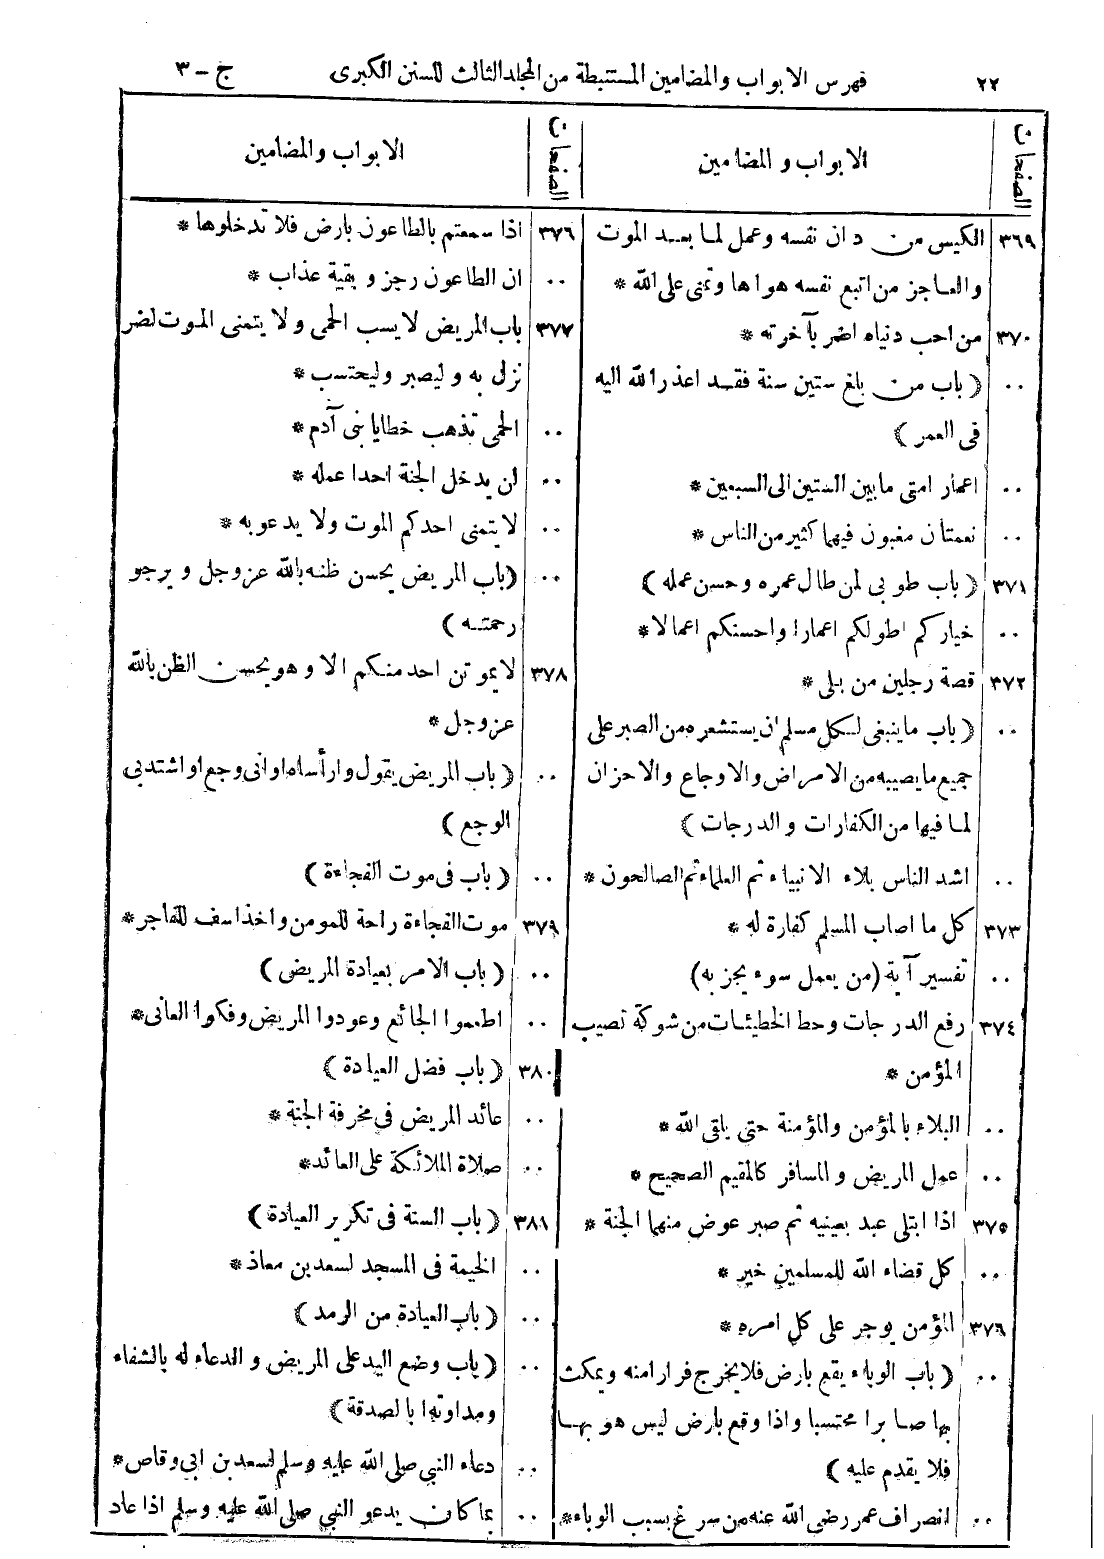 ٢٢ فهرس الابواب والمضامين المستنبطة من المجلد الثالث للسنن الكبرى ج - ٣
الصفحات الابواب والمضامين
٣٦٩ الكيس من دان نفسه وعمل لما بعد الموت
والعاجز من اتبع نفسه هواها وتمنى على الله *
٣٧٠ من احب دنياه اضر بآخرته *
٠٠ ( باب من بلغ ستين سنة فقد اعذر الله اليه
فى العمر )
٠٠ اعمار امتى ما بين الستين الى السبعين *
٠٠ نعمتان مغبون فيهما كثير من الناس *
٣٧١ ( باب طوبى لمن طال عمره وحسن عمله )
٠٠ خياركم اطولكم اعمارا واحسنكم اعمالا *
٣٧٢ قصة رجلين من بلى *
٠٠ ( باب ما ينبغى لكل مسلم ان يستشعره من الصبر على
جميع ما يصيبه من الامراض والاوجاع والاحزان
لما فيها من الكفارات والدرجات )
٠٠ اشد الناس بلاء الانبياء ثم العلماء ثم الصالحون *
٣٧٣ كل ما اصاب المسلم كفارة له *
٠٠ تفسير آية (من يعمل سوء يجز به)
٣٧٤ رفع الدرجات وحط الخطيئات من شوكة تصيب
المؤمن *
٠٠ البلاء بالمؤمن والمؤمنة حتى يلقى الله *
٠٠ عمل المريض والمسافر كالمقيم الصحيح *
٣٧٥ اذا ابتلى عبد بعينيه ثم صبر عوض منهما الجنة *
٠٠ كل قضاء الله للمسلمين خير *
٣٧٦ المؤمن يوجر على كل امره *
٠٠ ( باب الوباء يقع بارض فلا يخرج فرارا منه ويمكث
بها صابرا محتسبا واذا وقع بارض ليس هو بها
فلا يقدم عليه )
٠٠ انصراف عمر رضى الله عنه من سرغ بسبب الوباء *
الصفحات الابواب والمضامين
٣٧٦ اذا سمعتم بالطاعون بارض فلا تدخلوها *
٠٠ ان الطاعون رجز وبقية عذاب *
٣٧٧ باب المريض لا يسب الحمى ولا يتمنى الموت لضر
نزل به وليصبر وليحتسب *
٠٠ الحمى تذهب خطايا بنى آدم *
٠٠ لن يدخل الجنة احدا عمله *
٠٠ لا يتمنى احدكم الموت ولا يدعو به *
٠٠ (باب المريض يحسن ظنه بالله عزوجل ويرجو
رحمته )
٣٧٨ لا يموتن احد منكم الا وهو يحسن الظن بالله
عزوجل *
٠٠ ( باب المريض يقول وارأساه او انى وجع او اشتد بى
الوجع )
٠٠ ( باب فى موت الفجاءة )
٣٧٩ موت الفجاءة راحة للمومن واخذ اسف للفاجر *
٠٠ ( باب الامر بعيادة المريض )
٠٠ اطعموا الجائع وعودوا المريض وفكوا العانى *
٣٨٠ ( باب فضل العيادة )
٠٠ عائد المريض فى مخرفة الجنة *
٠٠ صلاة الملائكة على العائد *
٣٨١ ( باب السنة فى تكرير العيادة )
٠٠ الخيمة فى المسجد لسعد بن معاذ *
٠٠ ( باب العيادة من الرمد )
٠٠ ( باب وضع اليد على المريض والدعاء له بالشفاء
ومداوته بالصدقة )
٠٠ دعاء النبي صلى الله عليه وسلم لسعد بن ابى وقاص *
٠٠ بما كان يدعو النبي صلى الله عليه وسلم اذا عاد